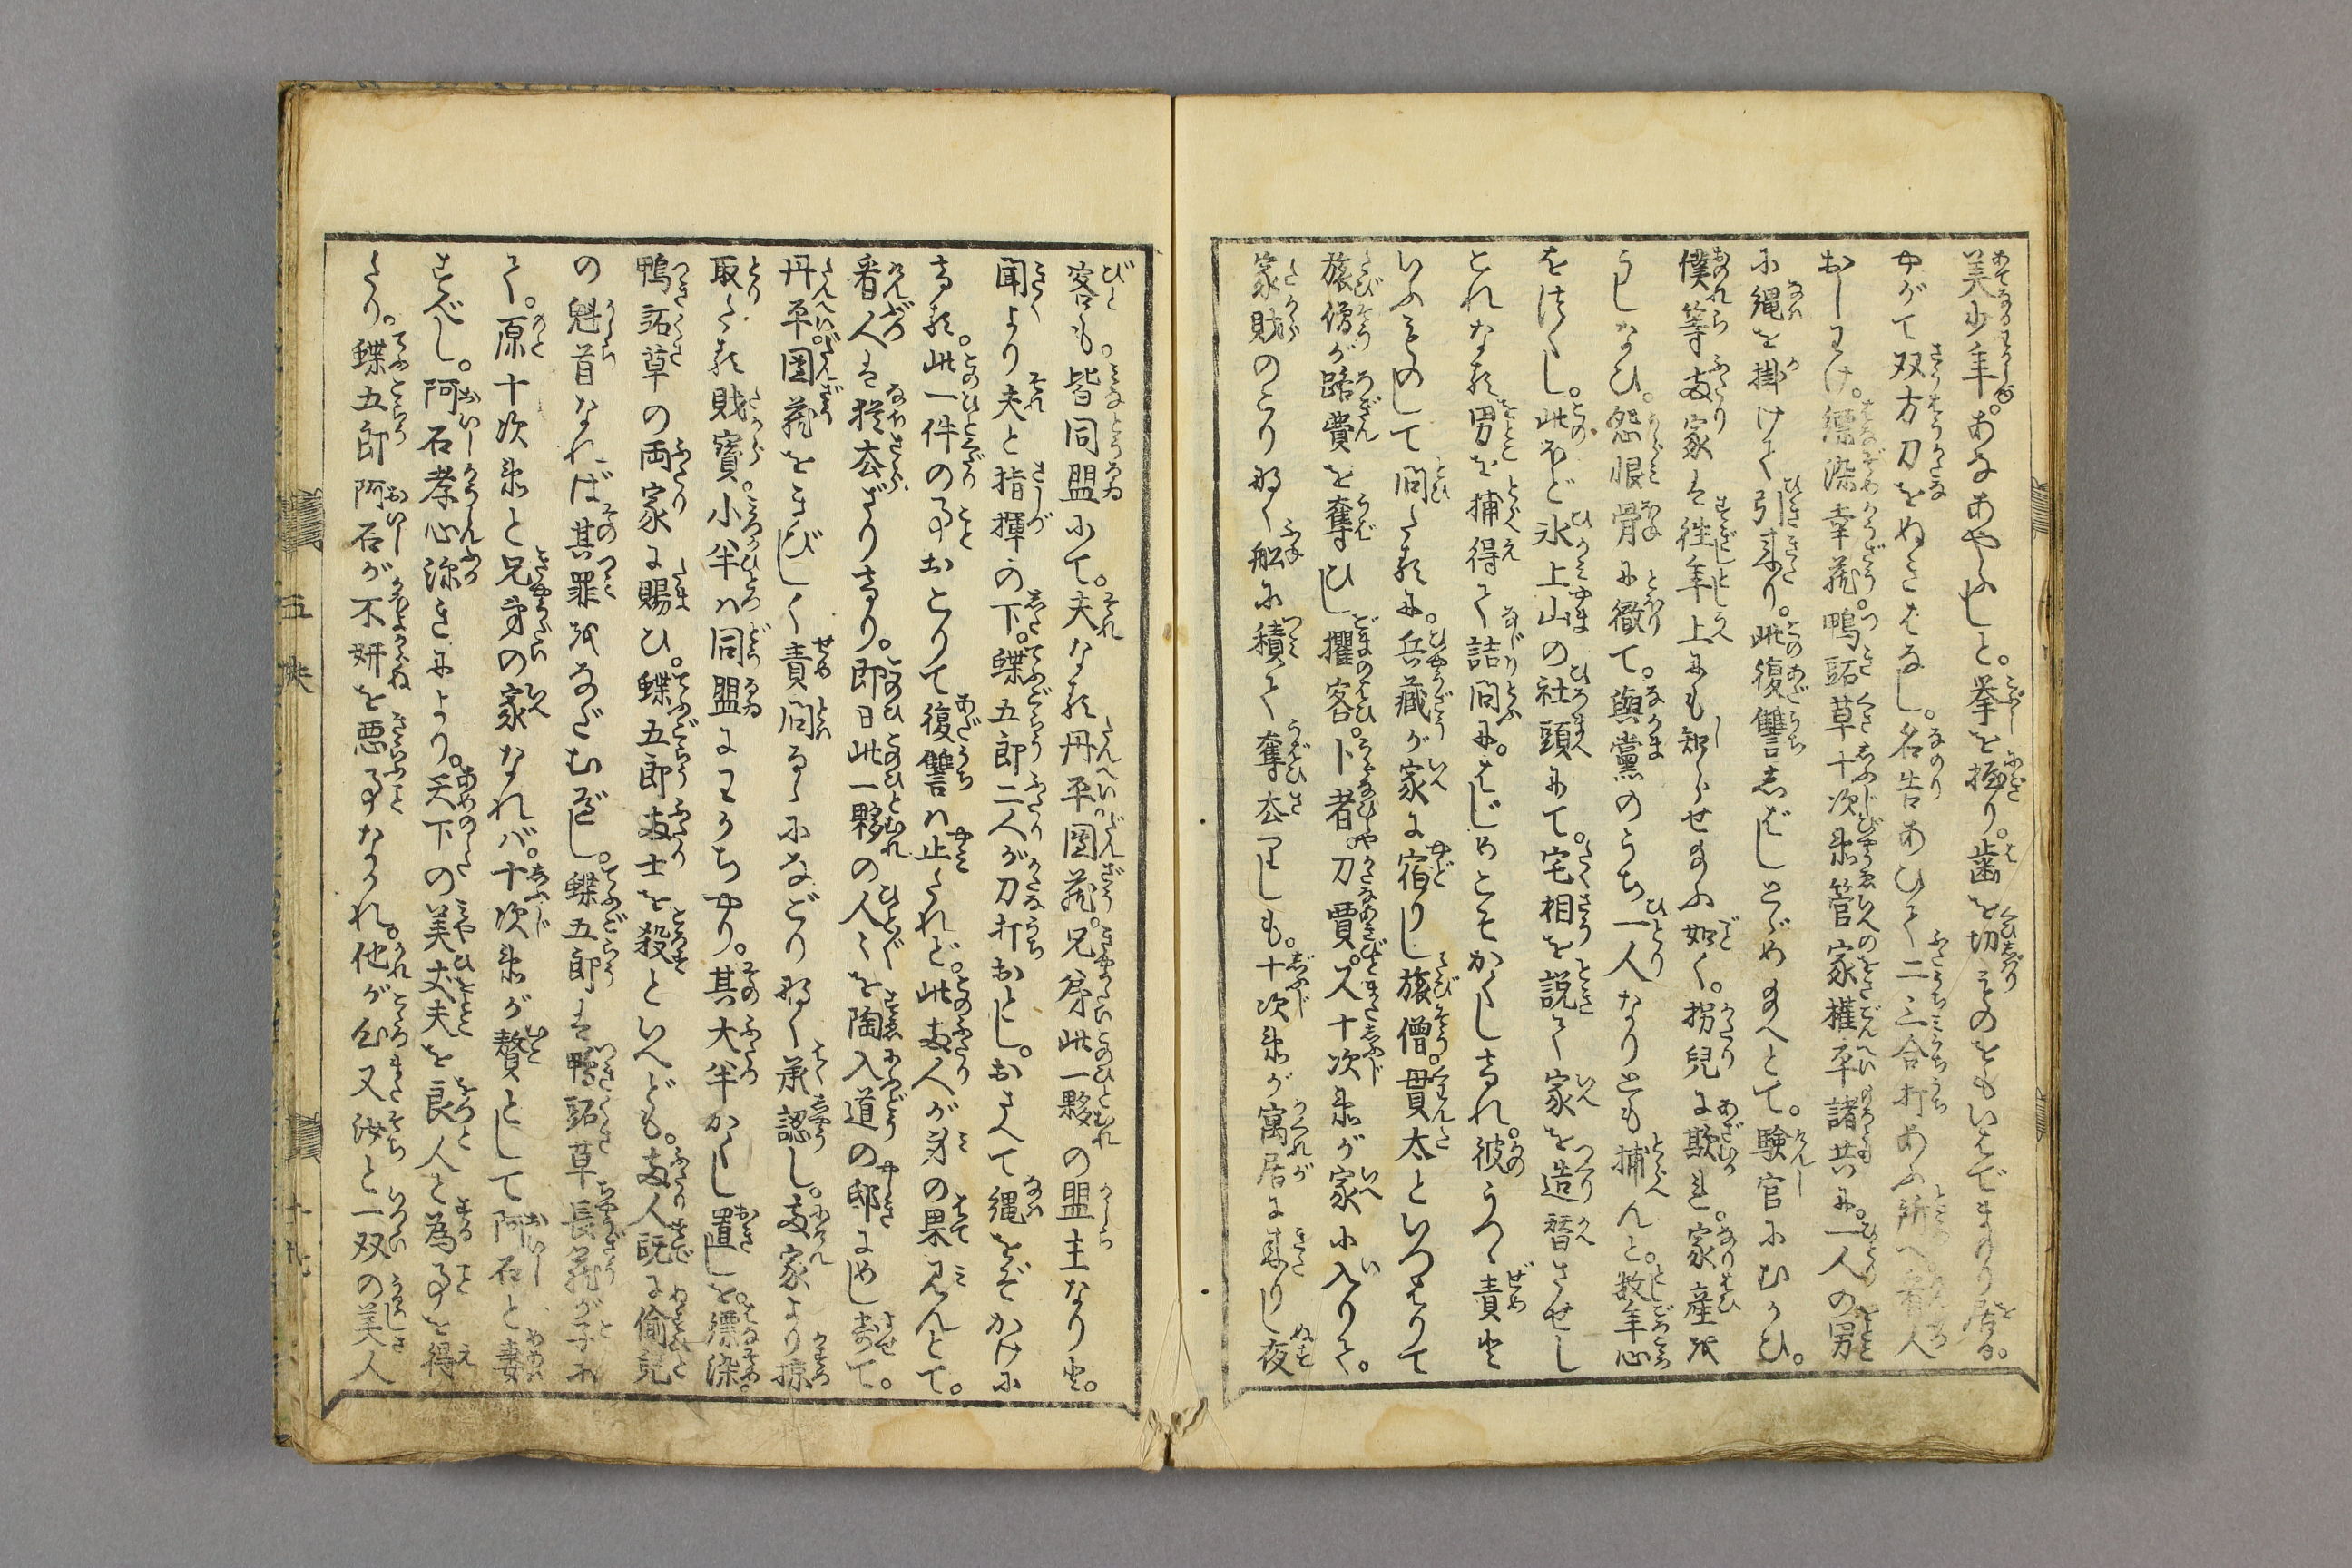 美少年。あなあやふしと。拳を握り。歯を切ものをもいはでまもり居る。
やがて双方刀をぬきはなし。名告あひて二三合打あふ所へ。着人
おしわけ。縹染幸蔵。鴨跖草十次郎。管家権平諸共に。一人の男
に縄を掛けて引来り。此復讐しばしとゞめ給へとて。験官にむかひ。
僕等両家は往年上にも知らせ給ふ如く。拐児に欺れ。家産を
うしなひ。怨恨骨に徹て。與黨のうち一人なりとも捕んと。数年心
をはげし。此ほど氷上山の社頭にて。宅相を説て家を造替させし
これなる男を捕得て詰問に。はじめこそかくしたれ。彼うつゝ責や
いふものして問たるに。兵蔵が家に宿りし旅僧。貫太といつはりて
旅僧が路費を奪ひし擢客。卜者。刀賈。又十次郎が家に入りて。
家財のこり那く船に積て奪去りしも。十次郎が寓居に来りし夜
客も。皆同盟にて。夫なる丹平団蔵。兄弟此一夥の盟主なりや。
聞より夫と指揮の下。蝶五郎二人が刀打おとし。おさへて縄をぞかけに
ける。此一件の事おこりて復讐は止たれど。此両人が身の果見んとて。
看人は猶去ざりける。即日此一夥の人々を陶入道の邸にめし寄て。
丹平団蔵をきびしく責問るゝになごり那く承認し。両家より掠
取たる財寶。小半は同盟にわかちやり。其大半かくし置しを。縹染。
鴨跖草の両家に賜ひ。蝶五郎両士を殺といへども。両人既に偷児
の魁首なれば其罪をなだむべし。蝶五郎は鴨跖草長蔵が子に
て。原十次郎と兄弟の家なれバ。十次郎が贅として阿石と妻
すべし。阿石孝心深きにより。天下の美丈夫を良人と為事を得
たり。蝶五郎阿石が不妍を悪事なかれ。他が心又汝と一双の美人
五 帙